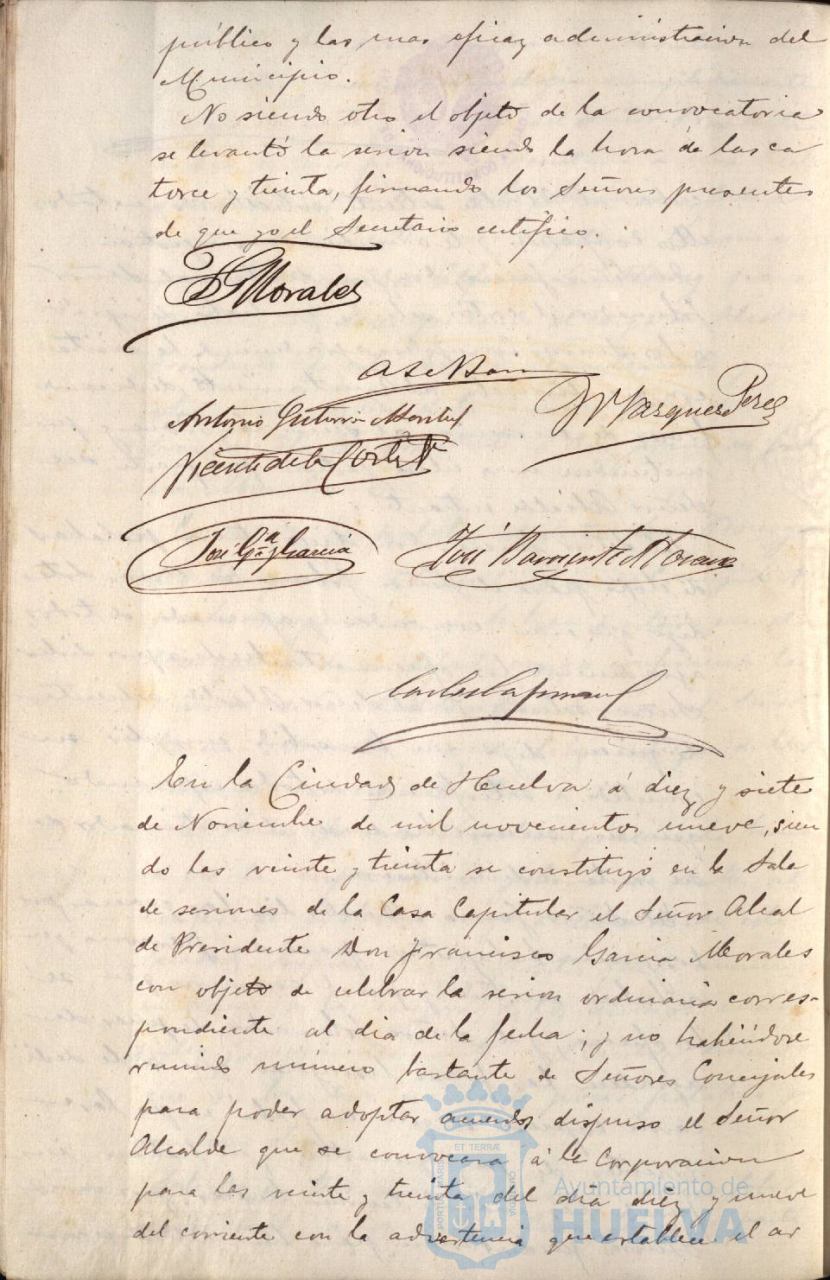 público y las mas eficaz administracion del
Municipio.
No siendo otro el objeto de la convocatoria
se levantó la sesion siendo la hora de las ca
torce y treinta, firmando los Señores presentes
de que yo el Secretario certifico.
F G Morales
Antonio Gutierrez Montiel
W Vasquez Perez
Vicente de la Corte
José Gª y Garcia
José Barriente Moreno
En la Ciudad de Huelva á diez y siete
de Noviembre de mil novecientos nueve, sien
do las veinte y treinta se constituyó en la Sala
de sesiones de la Casa Capitular el Señor Alcal
de Presidente Don Francisco Garcia Morales
con objeto de celebrar la sesion ordinaria corres-
pondiente al dia de la fecha; y no habiéndose
reunido número bastante de Señores Concejales
para poder adoptar acuerdos dispuso el Señor
Alcalde que se convocara á la Corporacion
para las veinte y treinta del dia diez y nueve
del corriente con la advertencia que establece el ar
Ayuntamiento de
HUELVA